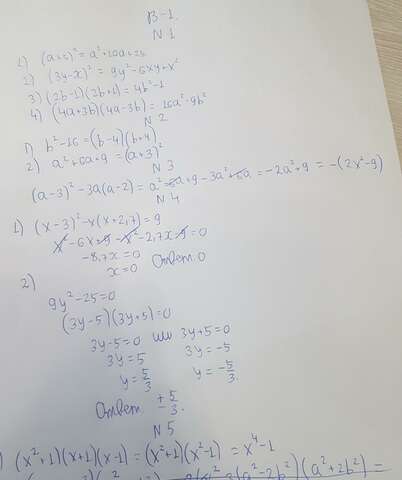 В-1.
N 1
1) (a+5)² = a²+10a+25
2) (3y-x)² = 9y²-6xy+x²
3) (2b-1)(2b+1) = 4b²-1
4) (4a+3b)(4a-3b) = 16a²-9b²
N 2
1) b²-16 = (b-4)(b+4)
2) a²+6a+9 = (a+3)²
N 3
(a-3)²-3a(a-2) = a²-6a+9-3a²+6a = -2a²+9 = -(2x²-9)
N 4
1) (x-3)²-x(x+2,7) = 9
x²-6x+9-x²-2,7x-9=0
-8,7x=0
x=0 Ответ. 0
2)
9y²-25=0
(3y-5)(3y+5)=0
3y-5=0 или 3y+5=0
3y=5 3y=-5
y=5/3 y=-5/3.
Ответ. ±5/3.
N 5
) (x²+1)(x+1)(x-1) = (x²+1)(x²-1) = x⁴-1
(a²-2b²)(a²+2b²) =